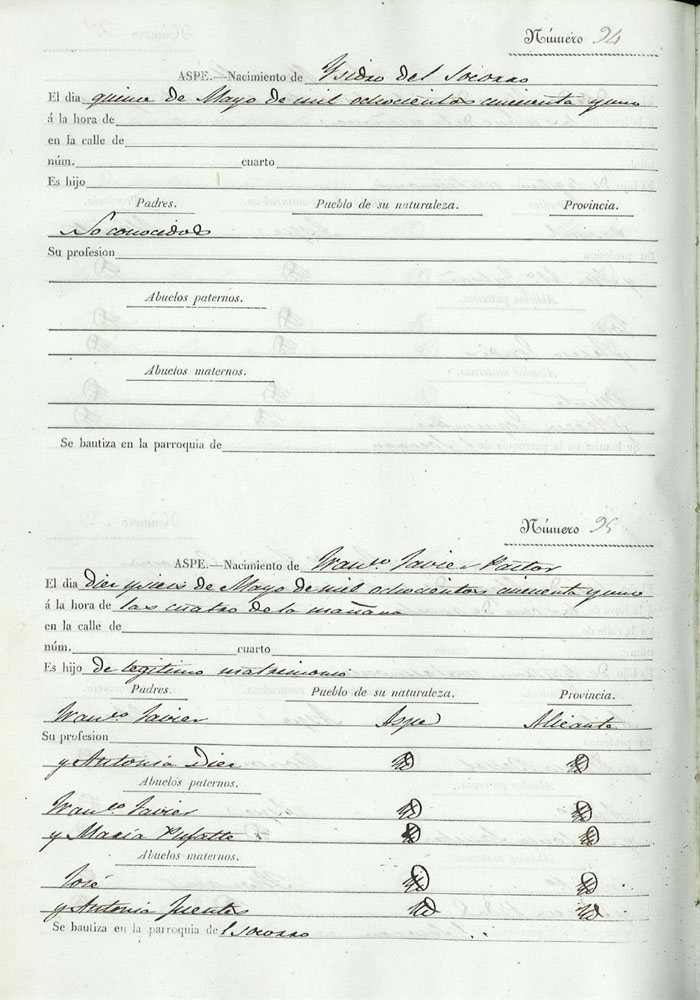 Número 94
ASPE.—Nacimiento de Ysidro del Socorro
El dia quince de Mayo de mil ochocientos cincuenta y uno
á la hora de
en la calle de
núm. cuarto
Es hijo
Padres. Pueblo de su naturaleza. Provincia.
No conocidos
Su profesion
Abuelos paternos.
Abuelos maternos.
Se bautiza en la parroquia de
Número 95
ASPE.—Nacimiento de Franco Javier Pastor
El dia diez y seis de Mayo de mil ochocientos cincuenta y uno
á la hora de las cuatro de la mañana
en la calle de
núm. cuarto
Es hijo de legitimo matrimonio
Padres. Pueblo de su naturaleza. Provincia.
Franco Javier Aspe Alicante
Su profesion
y Antonia Diez Id Id
Abuelos paternos.
Franco Javier Id Id
y Maria Id Id
Abuelos maternos.
José Id Id
y Antonia Fuentes Id Id
Se bautiza en la parroquia del Socorro